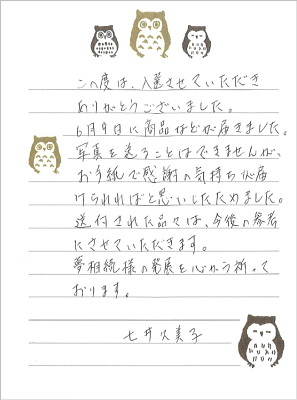 この度は、入選させていただき
ありがとうございました。
6月9日に商品などが届きました。
写真を送ることはできませんが、
お手紙で感謝の気持ちが届
けられればと思いしたためました。
送付された品々は、今後の参考
にさせていただきます。
夢相続様の発展を心から祈って
おります。
七井久美子